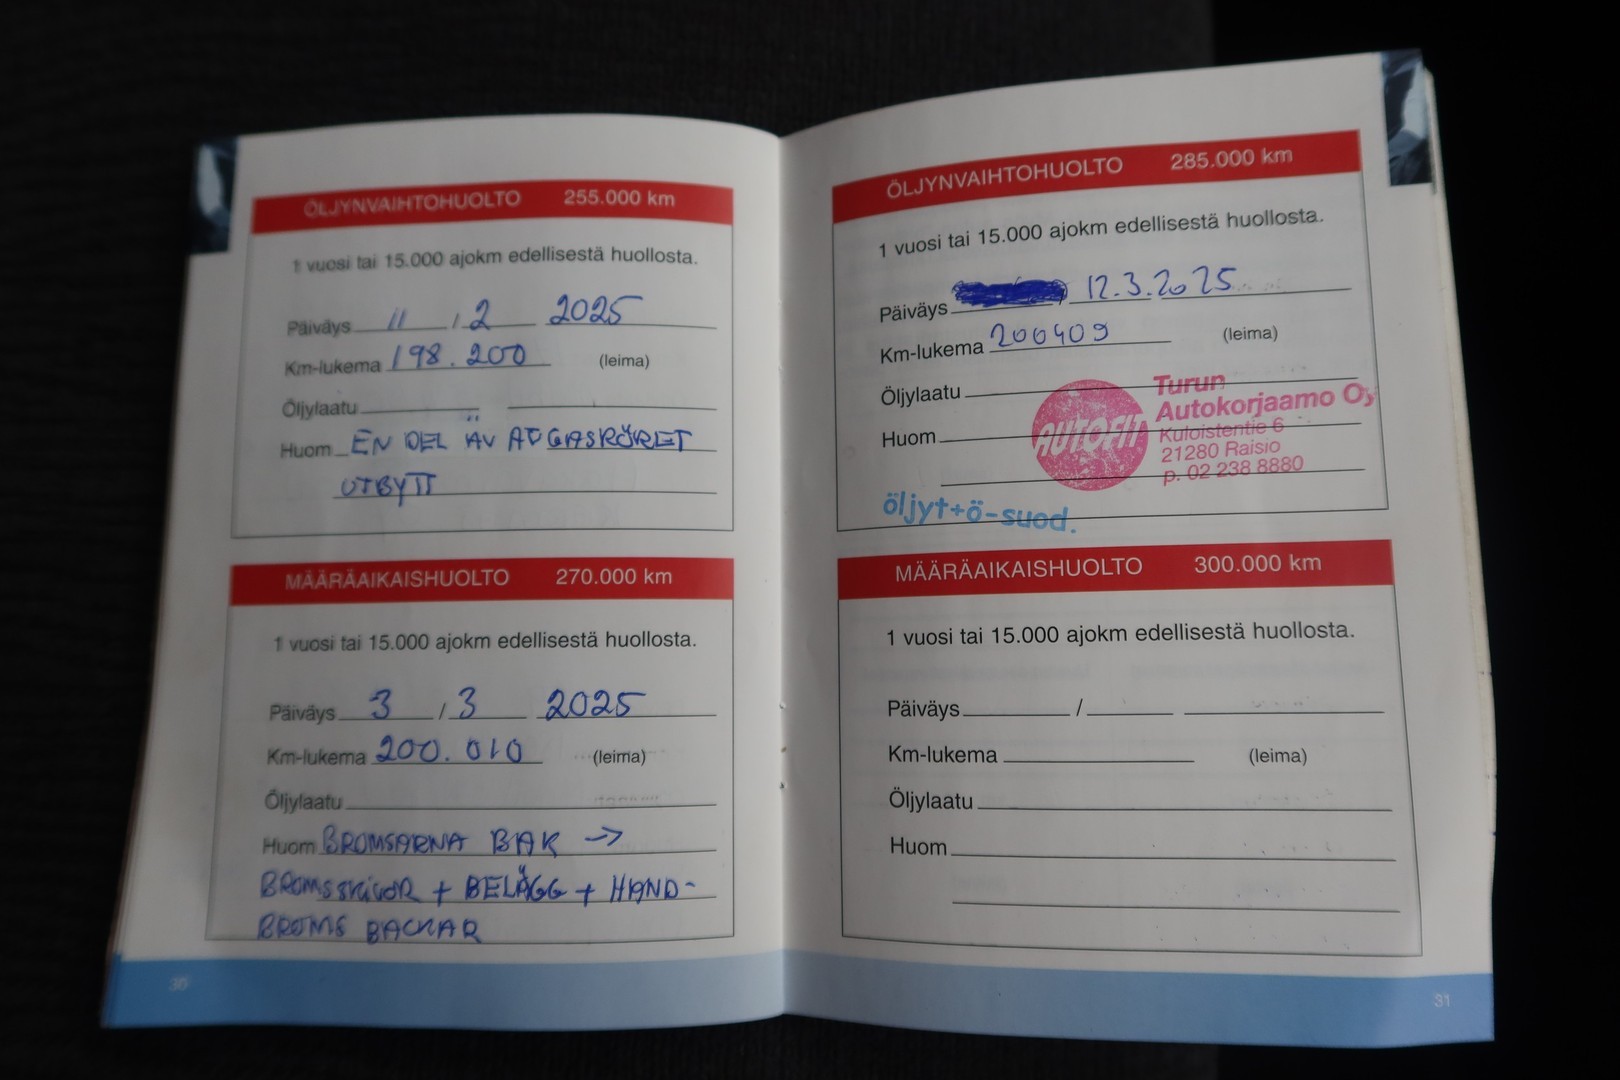 ÖLJYNVAIHTOHUOLTO 255.000 km
1 vuosi tai 15.000 ajokm edellisestä huollosta.
Päiväys 11 / 2 2025
Km-lukema 198.200 (leima)
Öljylaatu
Huom EN DEL ÄV AVGASRÖRET
UTBYTT
MÄÄRÄAIKAISHUOLTO 270.000 km
1 vuosi tai 15.000 ajokm edellisestä huollosta.
Päiväys 3 / 3 2025
Km-lukema 200.010 (leima)
Öljylaatu
Huom BROMSARNA BAK →
BROMSSKIVOR + BELÄGG + HAND-
BROMS BACKAR
30
ÖLJYNVAIHTOHUOLTO 285.000 km
1 vuosi tai 15.000 ajokm edellisestä huollosta.
Päiväys 12.3.2025
Km-lukema 200409 (leima)
Öljylaatu
Huom
AUTOFIT
Turun
Autokorjaamo Oy
Kuloistentie 6
21280 Raisio
p. 02 238 8880
öljyt+ö-suod.
MÄÄRÄAIKAISHUOLTO 300.000 km
1 vuosi tai 15.000 ajokm edellisestä huollosta.
Päiväys /
Km-lukema (leima)
Öljylaatu
Huom
31